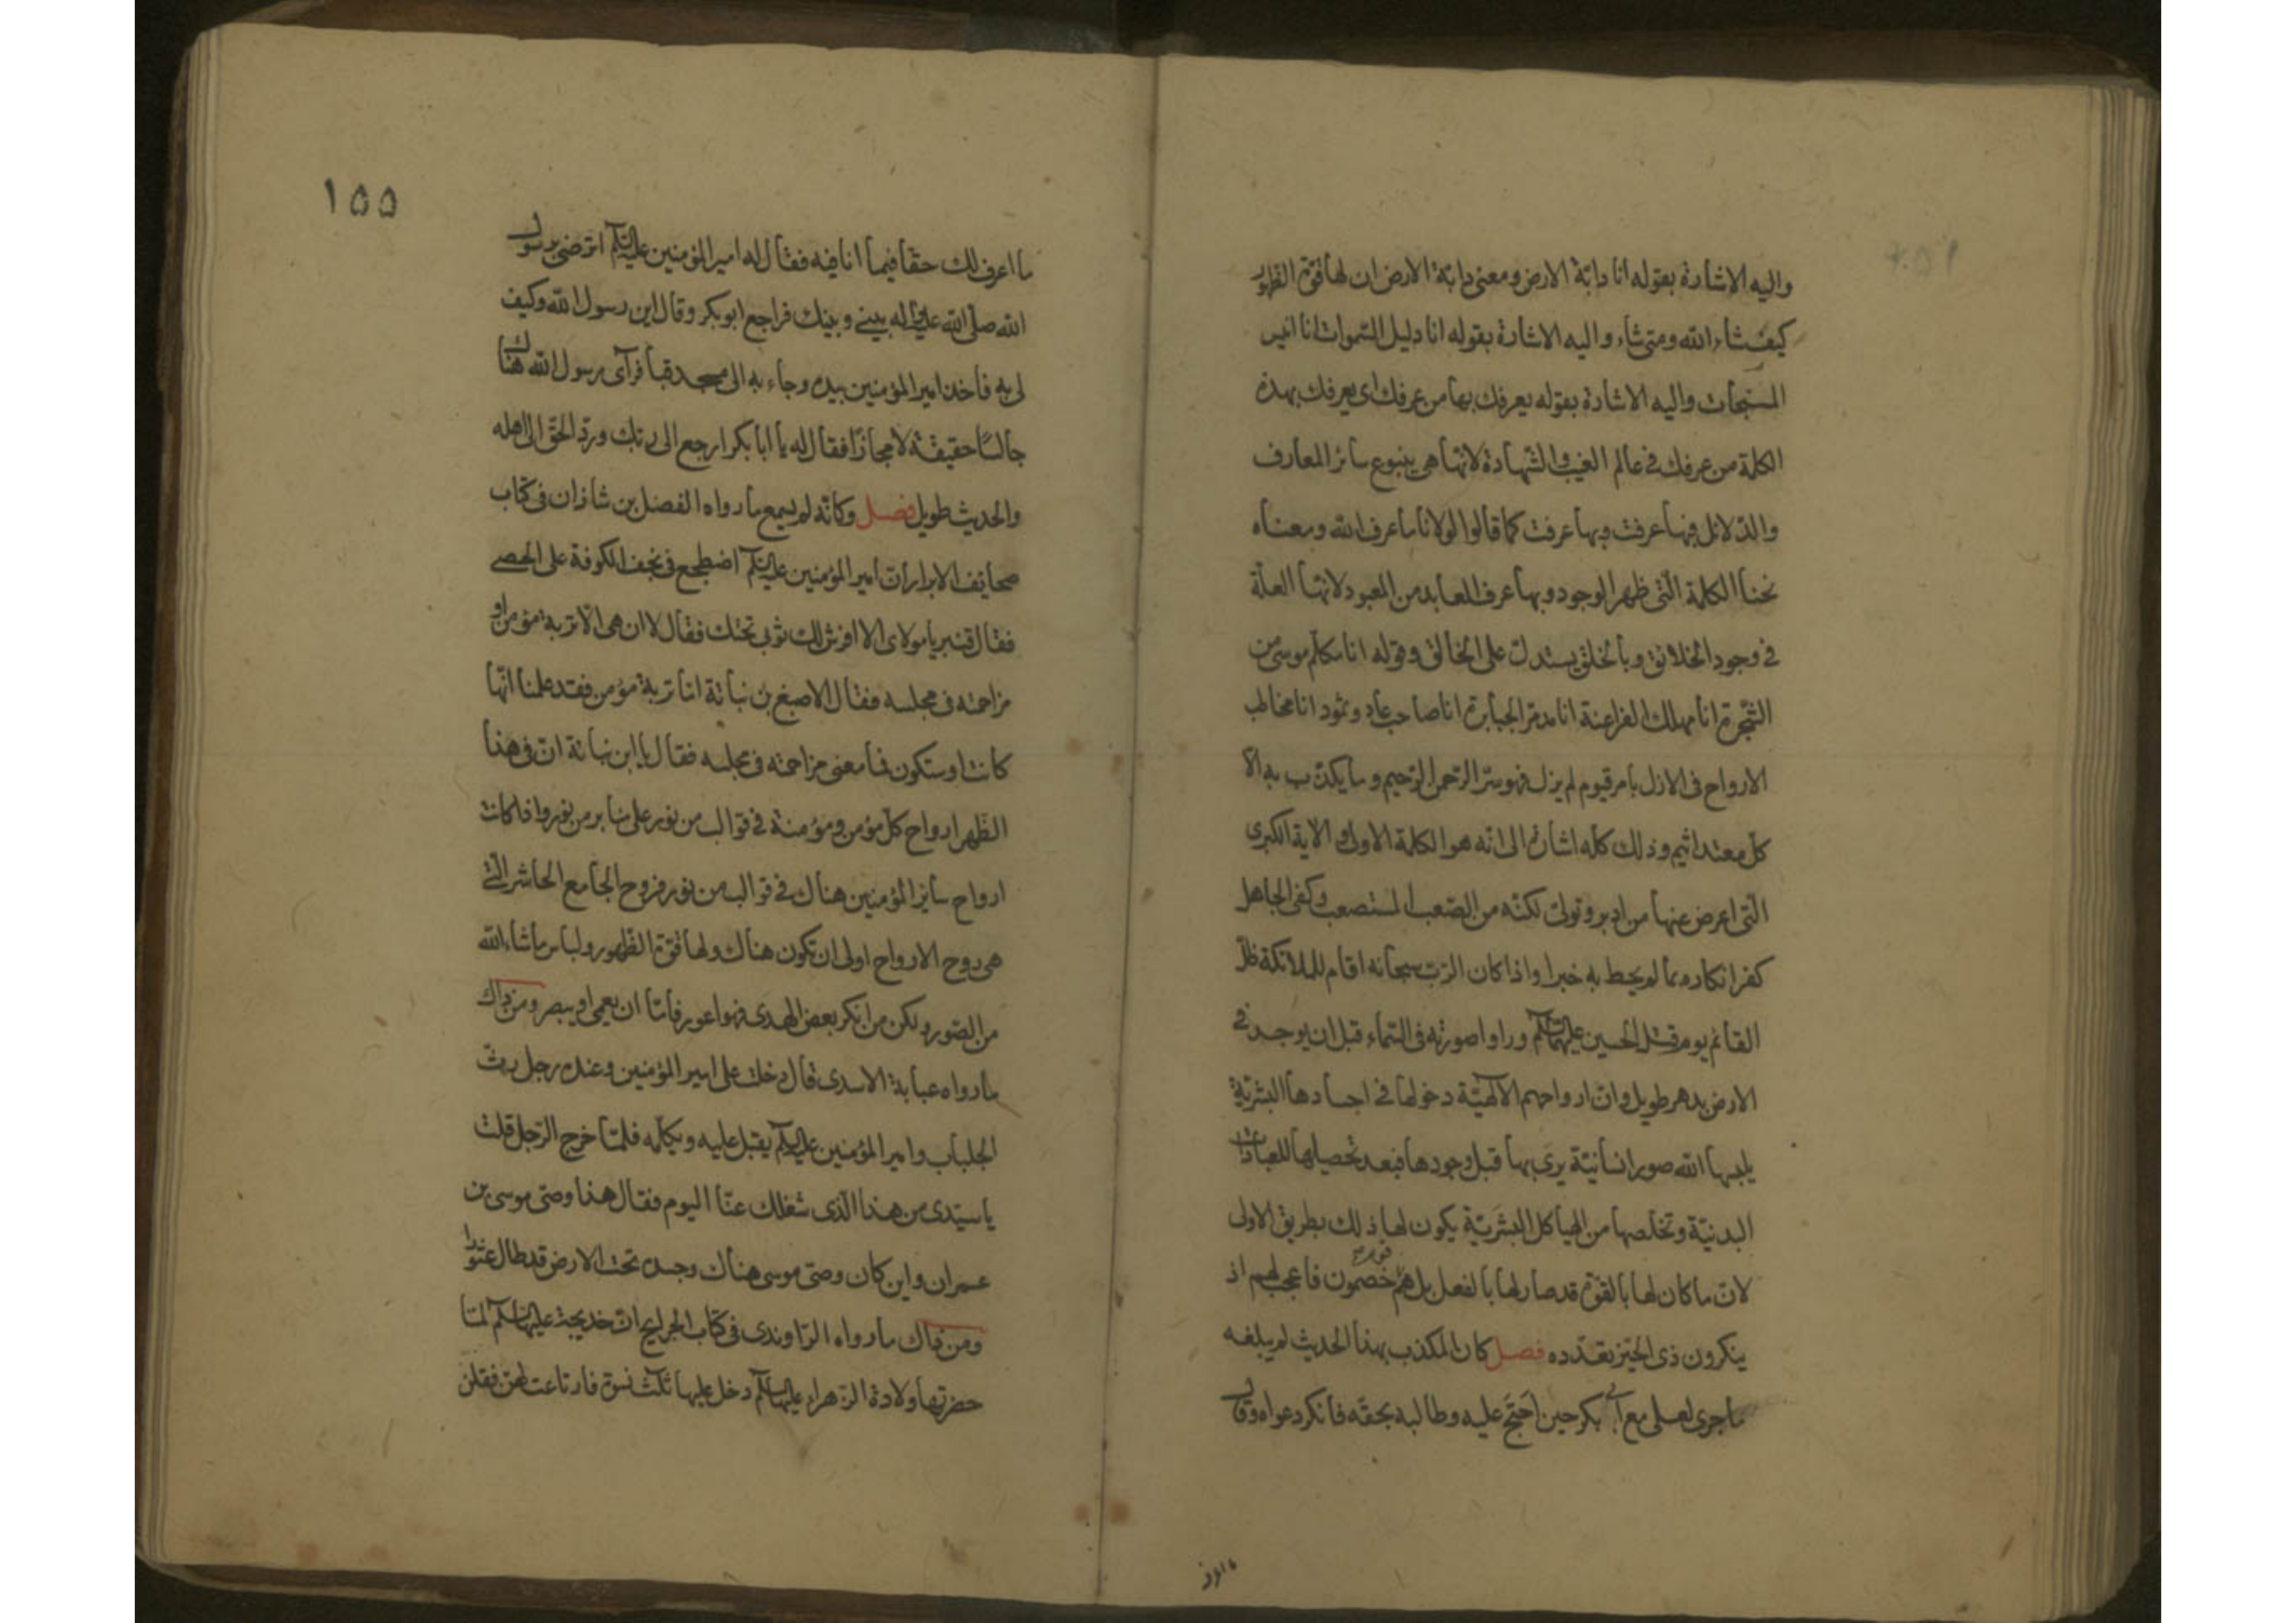 واليه الاشارة بقوله انا دابة الارض ومعنى دابة الارض ان لها قوة الظهور
كيف شاء الله ومتى شاء واليه الاشارة بقوله انا دليل السموات انا انيس
المسبحات واليه الاشارة بقوله يعرفك بها من عرفك اى يعرفك بهذه
الكلمة من عرفك فى عالم الغيب والشهادة لانها هى ينبوع سائر المعارف
والدلائل فبها عرفت وبها عرفت كما قالوا لولانا ما عرف الله ومعناه
نحن الكلمة التى ظهر الوجود وبها عرف العابد من المعبود لانها العلة
فى وجود الخلائق وبالخلق يستدل على الخالق وقوله انا مكلم موسى من
الشجرة انا مهلك الفراعنة انا مدمر الجبابرة انا صاحب عاد وثمود انا مخاطب
الارواح فى الازل بامر قيوم لم يزل فهو سر الرحمن الرحيم وما يكذب به الا
كل معتد اثيم وذلك كله اشارة الى انه هو الكلمة الاولى والاية الكبرى
التى اعرض عنها من ادبر وتولى لكنه من الصعب المستصعب وكفى الجاهل
كفرا نكاره بما لم يحط به خبرا واذا كان الرب سبحانه اقام للملائكة ظل
القائم يوم قتل الحسين عليهما السلام وراوا صورته فى السماء قبل ان يوجد فى
الارض بدهر طويل وان ارواحهم الالهية دخولها فى اجسادها البشرية
يلبسها الله صور انسانية يرى بها قبل وجودها فبعد تحصيلها للعبادات
البدنية وتخلصها من الهياكل البشرية يكون لها ذلك بطريق الاولى
لان ما كان لها بالقوة قد صار لها بالفعل بل هم قوم خصمون فاعجب لهم اذ
ينكرون ذى الحيز تعدده فصل كان المكذب بهذا الحديث لم يبلغه
ما جرى لعلى مع ابى بكر حين احتج عليه وطالبه بحقه فانكر دعواه وقال
١٥٥
ما اعرف لك حقا فيما انا فيه فقال له امير المؤمنين عليه السلم اترضى برسول
الله صلى الله عليه واله بينى وبينك فراجع ابو بكر وقال اين رسول الله وكيف
لى به فاخذ امير المؤمنين بيده وجاء به الى مسجد قبا فرآى رسول الله هناك
جالسًا حقيقة لا مجازا فقال له يا ابا بكر ارجع الى ربك ورد الحق الى اهله
والحديث طويل فصل وكانه لم يسمع ما رواه الفضل بن شاذان فى كتاب
صحايف الابرار ان امير المؤمنين عليه السلم اضطجع فى نجف الكوفة على الحصى
فقال قنبر يا مولاى الا افرش لك ثوبى تحتك فقال لا ان هى الا تربة مؤمن او
مزاحمته فى مجلسه فقال الاصبغ بن نباتة اما تربة مؤمن فقد علمنا انها
كانت او ستكون فما معنى مزاحمته فى مجلسه فقال يا ابن نباتة ان فى هذا
الظهر ارواح كل مؤمن ومؤمنة فى قوالب من نور على منابر من نور واذا كانت
ارواح ساير المؤمنين هناك فى قوالب من نور فروح الجامع الحاشر التى
هى روح الارواح اولى ان تكون هناك ولها قوة الظهور ولباس ما شاء الله
من الصور ولكن من انكر بعض الهدى فهو اعور فاما ان يعمى او يبصر ومن ذاك
ما رواه عباية الاسدى قال دخلت على امير المؤمنين وعنده رجل رث
الجلباب وامير المؤمنين عليه السلم يقبل عليه ويكلمه فلما خرج الرجل قلت
يا سيدى من هذا الذى شغلك عنا اليوم فقال هذا وصى موسى بن
عمران واين كان وصى موسى هناك وجسده تحت الارض قد طال
ومن ذاك ما رواه الراوندى فى كتاب الخرايج ان خديجة عليها السلم لما
حضرتها ولادة الزهراء عليها السلم دخل عليها ثلث نسوة فارتاعت لهن فقلن